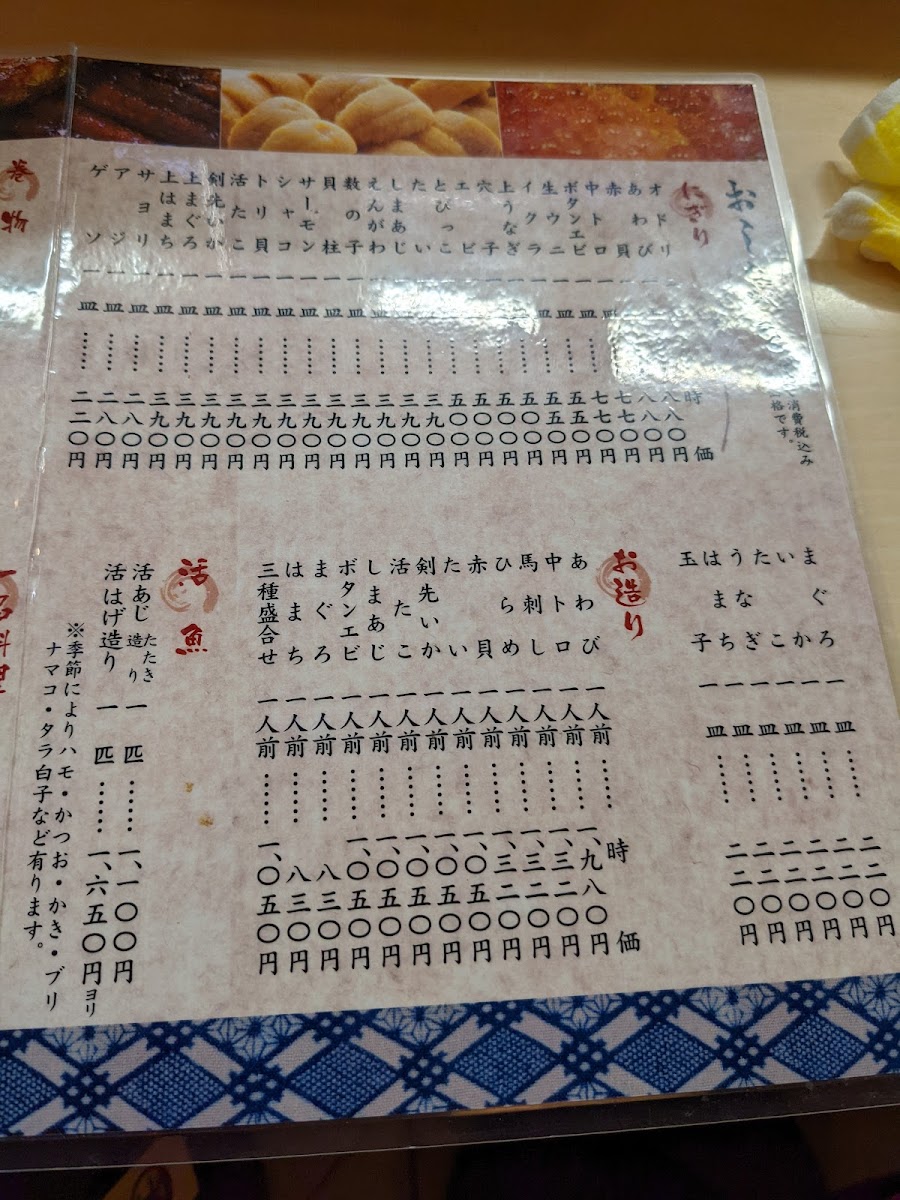 おし
消費税込み
格です。
にぎり
オドリ 一皿……時価
あわび 一皿……八八〇円
赤貝 一皿……八八〇円
中トロ 一皿……七七〇円
ボタンエビ 一皿……七七〇円
生ウニ 一皿……五五〇円
イクラ 一皿……五五〇円
上うなぎ 一皿……五〇〇円
穴子 一皿……五〇〇円
エビ 一皿……五〇〇円
とびっこ 一皿……五〇〇円
たい 一皿……三九〇円
しまあじ 一皿……三九〇円
えんがわ 一皿……三九〇円
数の子 一皿……三九〇円
貝柱 一皿……三九〇円
サーモン 一皿……三九〇円
シャコ 一皿……三九〇円
トリ貝 一皿……三九〇円
活たこ 一皿……三九〇円
剣先いか 一皿……三九〇円
上まぐろ 一皿……三九〇円
上はまち 一皿……三九〇円
サヨリ 一皿……二八〇円
アジ 一皿……二八〇円
ゲソ 一皿……二二〇円
まぐろ 一皿……二二〇円
いか 一皿……二二〇円
たこ 一皿……二二〇円
うなぎ 一皿……二二〇円
はまち 一皿……二二〇円
玉子 一皿……二二〇円
お造り
あわび 一人前……時価
中トロ 一人前……一、九八〇円
馬刺し 一人前……一、三二〇円
ひらめ 一人前……一、三二〇円
赤貝 一人前……一、三二〇円
たい 一人前……一、〇五〇円
剣先いか 一人前……一、〇五〇円
活たこ 一人前……一、〇五〇円
しまあじ 一人前……一、〇五〇円
ボタンエビ 一人前……一、〇五〇円
まぐろ 一人前……八三〇円
はまち 一人前……八三〇円
三種盛合せ 一人前……一、〇五〇円
活魚
活あじ たたき 造り 一匹……一、一〇〇円
活はげ造り 一匹……一、六五〇円ヨリ
※季節によりハモ・かつお・かき・ブリ
ナマコ・タラ白子など有ります。
巻物
一品料理